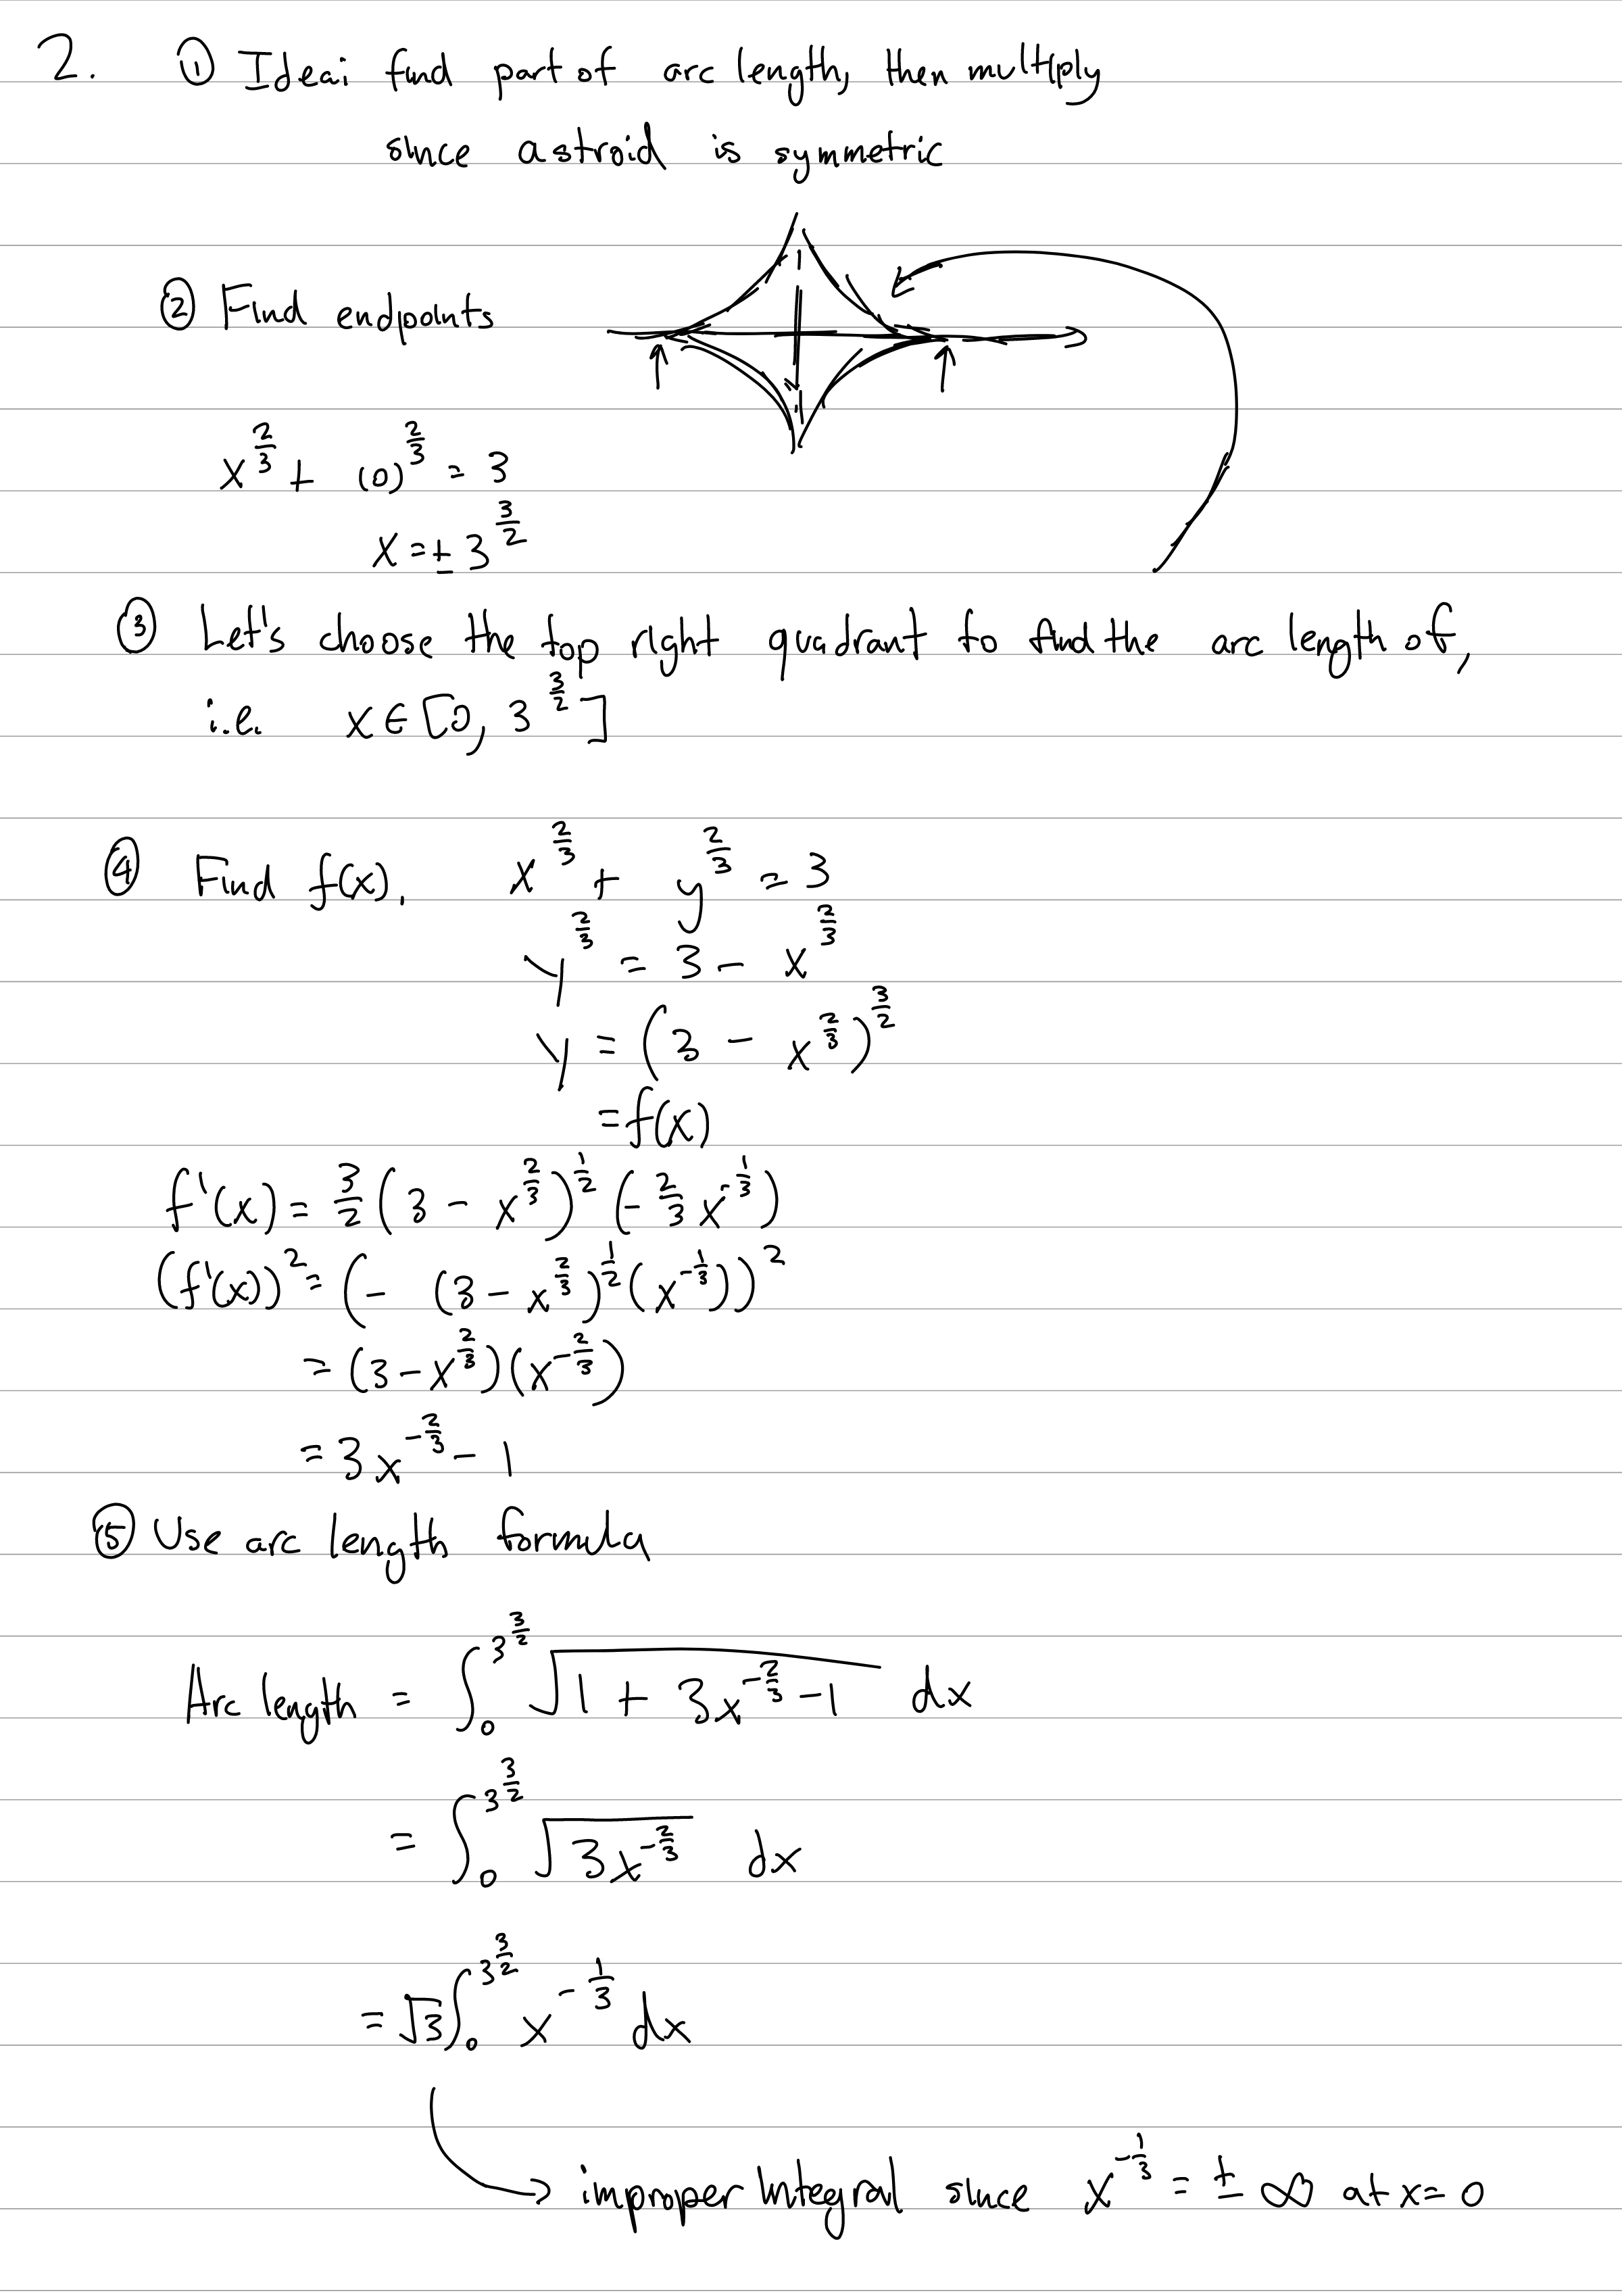 2. ① Idea: find part of arc length, then multiply
since astroid is symmetric
② Find endpoints
x^(2/3) + (0)^(2/3) = 3
x = ± 3^(3/2)
③ Let's choose the top right quadrant to find the arc length of,
i.e. x ∈ [0, 3^(3/2)]
④ Find f(x). x^(2/3) + y^(2/3) = 3
y^(2/3) = 3 - x^(2/3)
y = (3 - x^(2/3))^(3/2)
= f(x)
f'(x) = 3/2 (3 - x^(2/3))^(1/2) (-2/3 x^(-1/3))
(f'(x))^2 = (- (3 - x^(2/3))^(1/2) (x^(-1/3)))^2
= (3 - x^(2/3))(x^(-2/3))
= 3x^(-2/3) - 1
⑤ Use arc length formula
Arc length = ∫_0^(3^(3/2)) √(1 + 3x^(-2/3) - 1) dx
= ∫_0^(3^(3/2)) √(3x^(-2/3)) dx
= √3 ∫_0^(3^(3/2)) x^(-1/3) dx
improper integral since x^(-1/3) = ± ∞ at x = 0